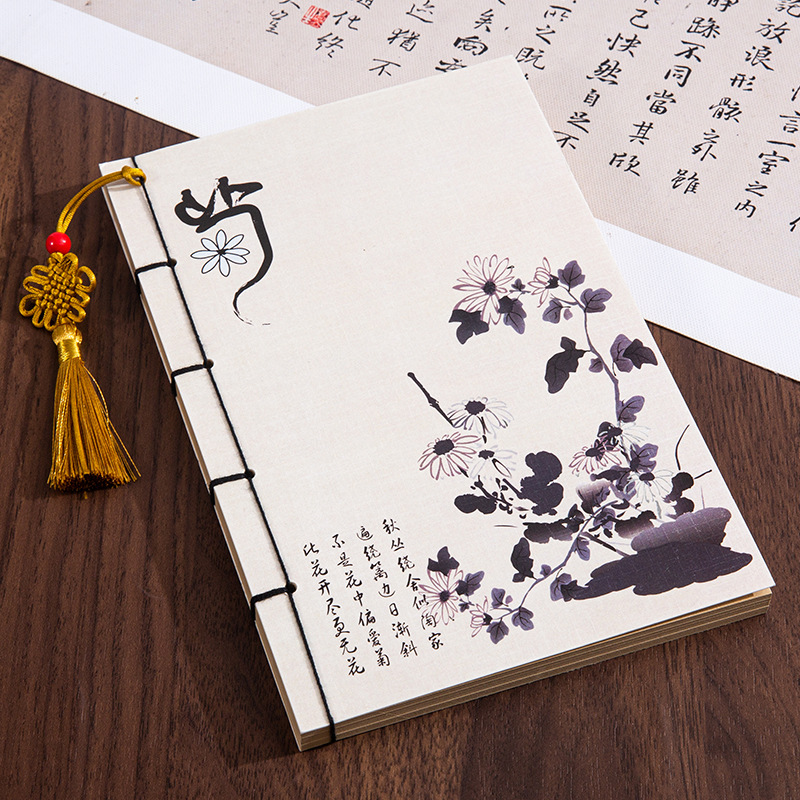 菊
秋丛绕舍似陶家
遍绕篱边日渐斜
不是花中偏爱菊
此花开尽更无花
言一室之内
放浪形骸之外雖
躁不同當其欣
己快然自足不
所之既
矣向
迹猶不
化終